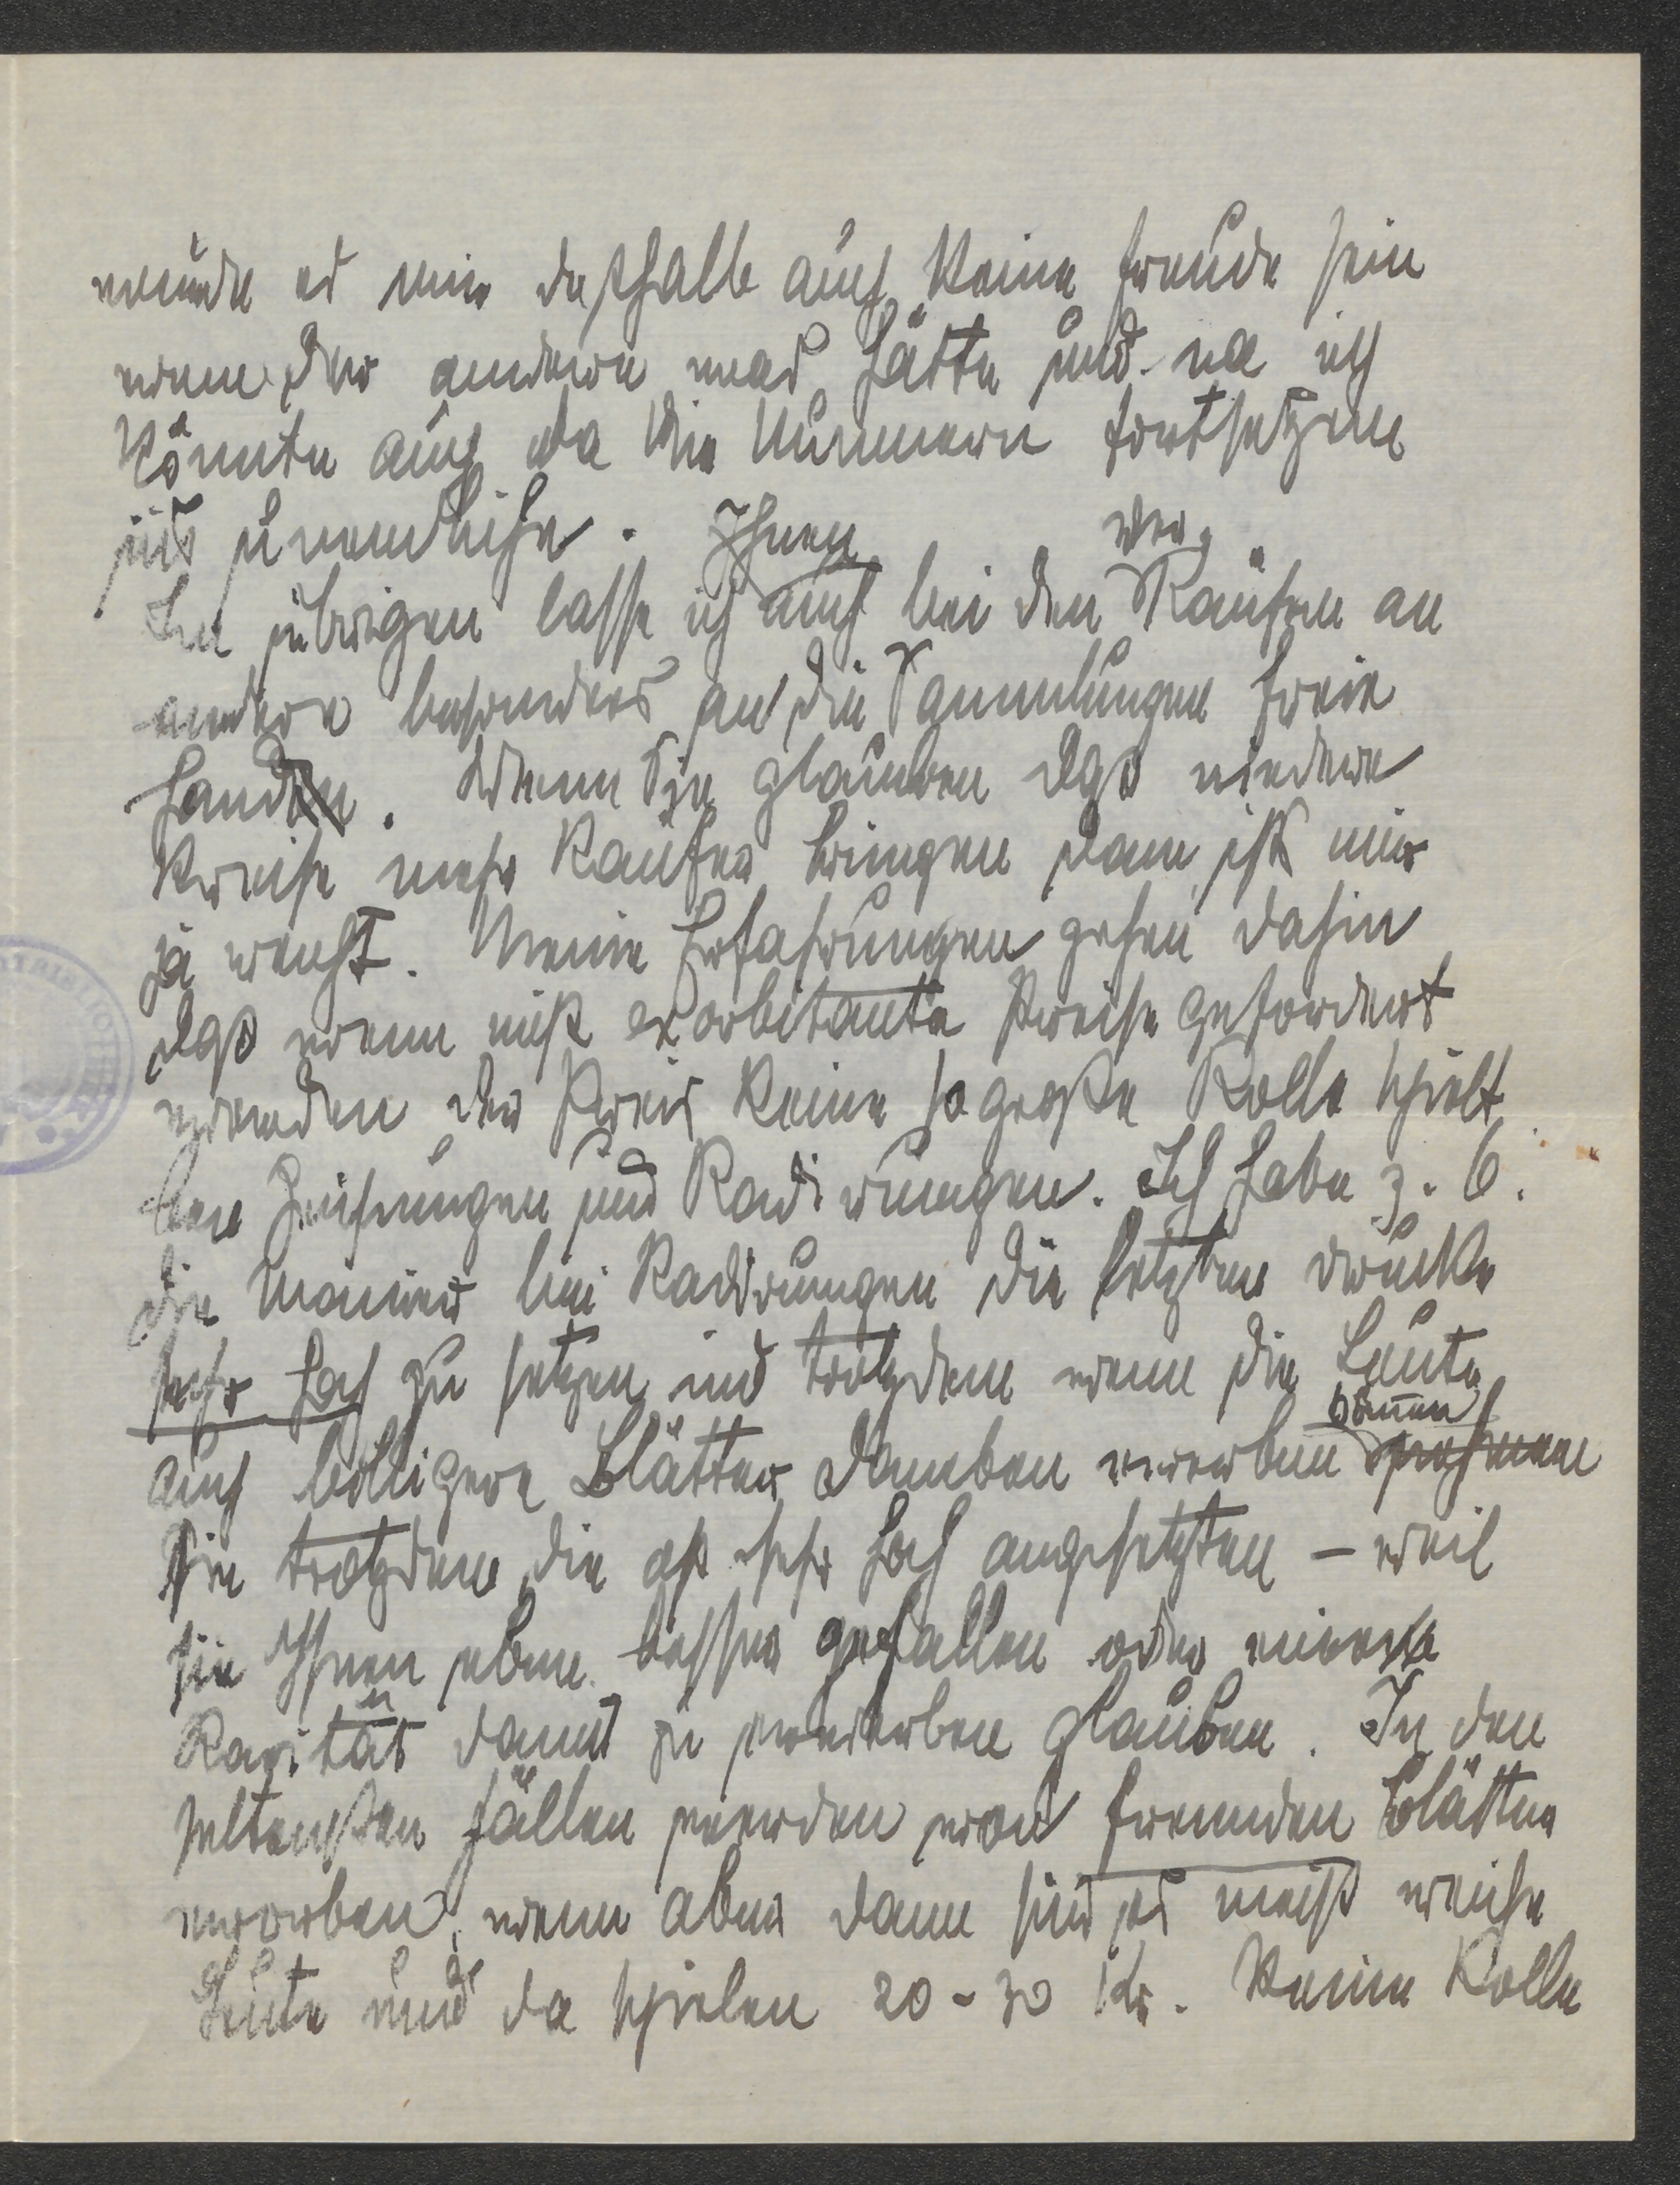 würde es mir deshalb auch keine Freude sein
wenn der andere was hätte und na ich
könnte auch da die Nummern fortsetzen
ins unendliche.
Im übrigen lasse ich Ihnen auch bei den Verkäufen an
andere besonders an die Sammlungen freie
Hand. Wenn Sie glauben das niedere
Preise mehr Käufer bringen dann ists mir
ja recht. Meine Erfahrungen gehen dahin
das wenn nicht exorbitante Preise gefordert
werden der Preis keine so große Rolle spielt
bei Zeichnungen und Radirungen. Ich habe z. B.
die Manier bei Radirungen die letzten drucke
sehr hoch zu setzen und trotzdem wenn die Leute
auch billigere Blätter daneben erwerben können nehmen
Sie trotzdem die oft sehr hoch angesetzten – weil
sie Ihnen eben besser gefallen oder eine
Rarität damit zu erwerben glauben. In den
seltensten Fällen werden von fremden Blätter
erworben, wenn aber dann sind es meist reiche
Leute und da spielen 20 - 30 Kr. keine Rolle